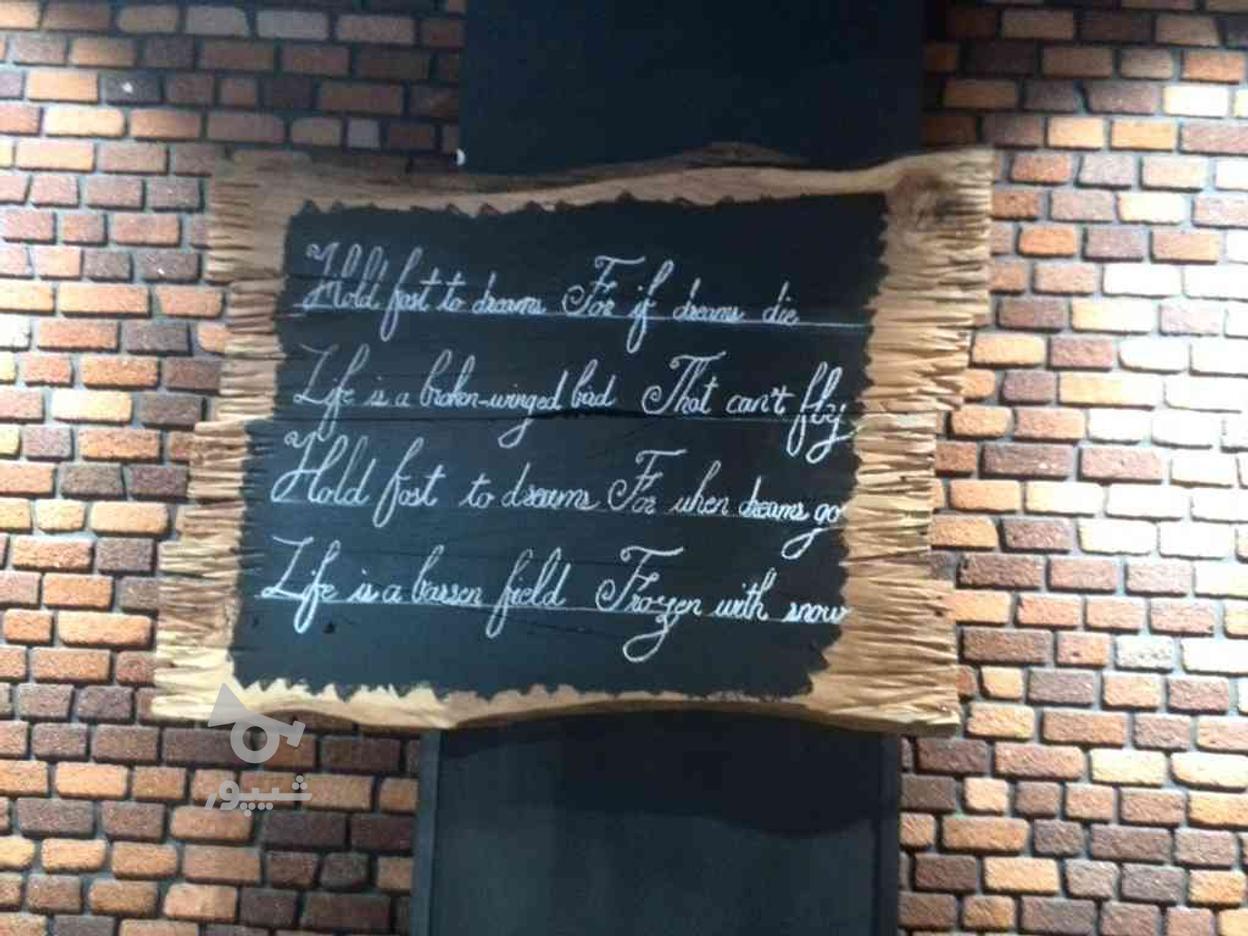 Hold fast to dreams For if dreams die
Life is a broken-winged bird That can't fly
Hold fast to dreams For when dreams go
Life is a barren field Frozen with snow
شیپور